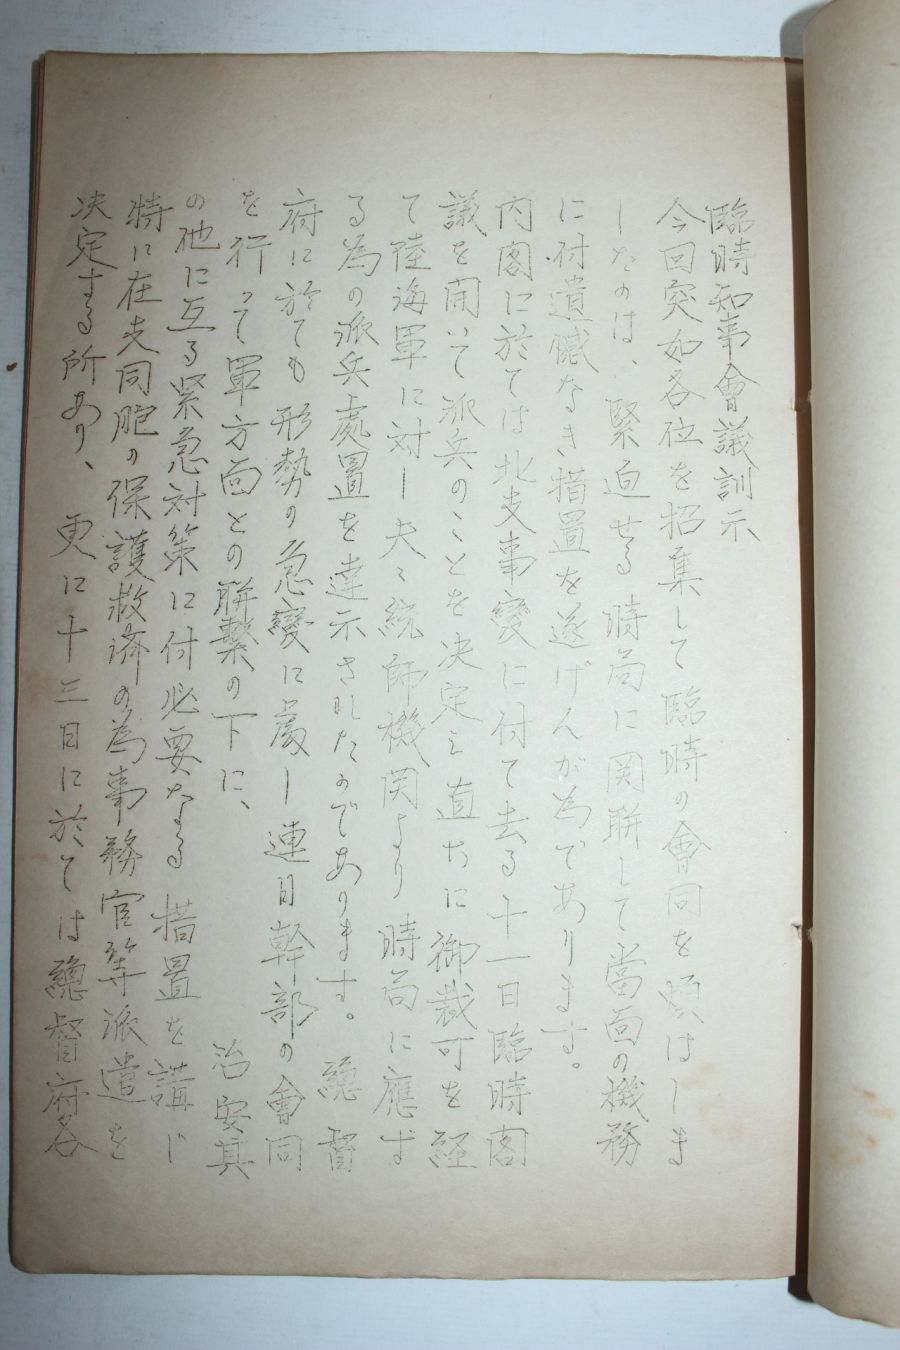 臨時知事會議訓示
今回突如各位を招集して臨時の會同を煩はしま
したのは、緊迫せる時局に関聯して當面の機務
に付遺憾なき措置を遂げんが為であります。
内閣に於ては北支事變に付て去る十一日臨時閣
議を開いて派兵のことを決定し直ちに御裁可を経
て陸海軍に対し夫々統帥機関より時局に應ず
る為の派兵處置を達示されたのであります。總督
府に於ても形勢の急變に處し連日幹部の會同
を行って軍方面との聯繋の下に、治安其
の他に亙る緊急対策に付必要なる措置を講じ
特に在支同胞の保護救済の為事務官等派遣を
決定する所あり、更に十三日に於ては總督府各